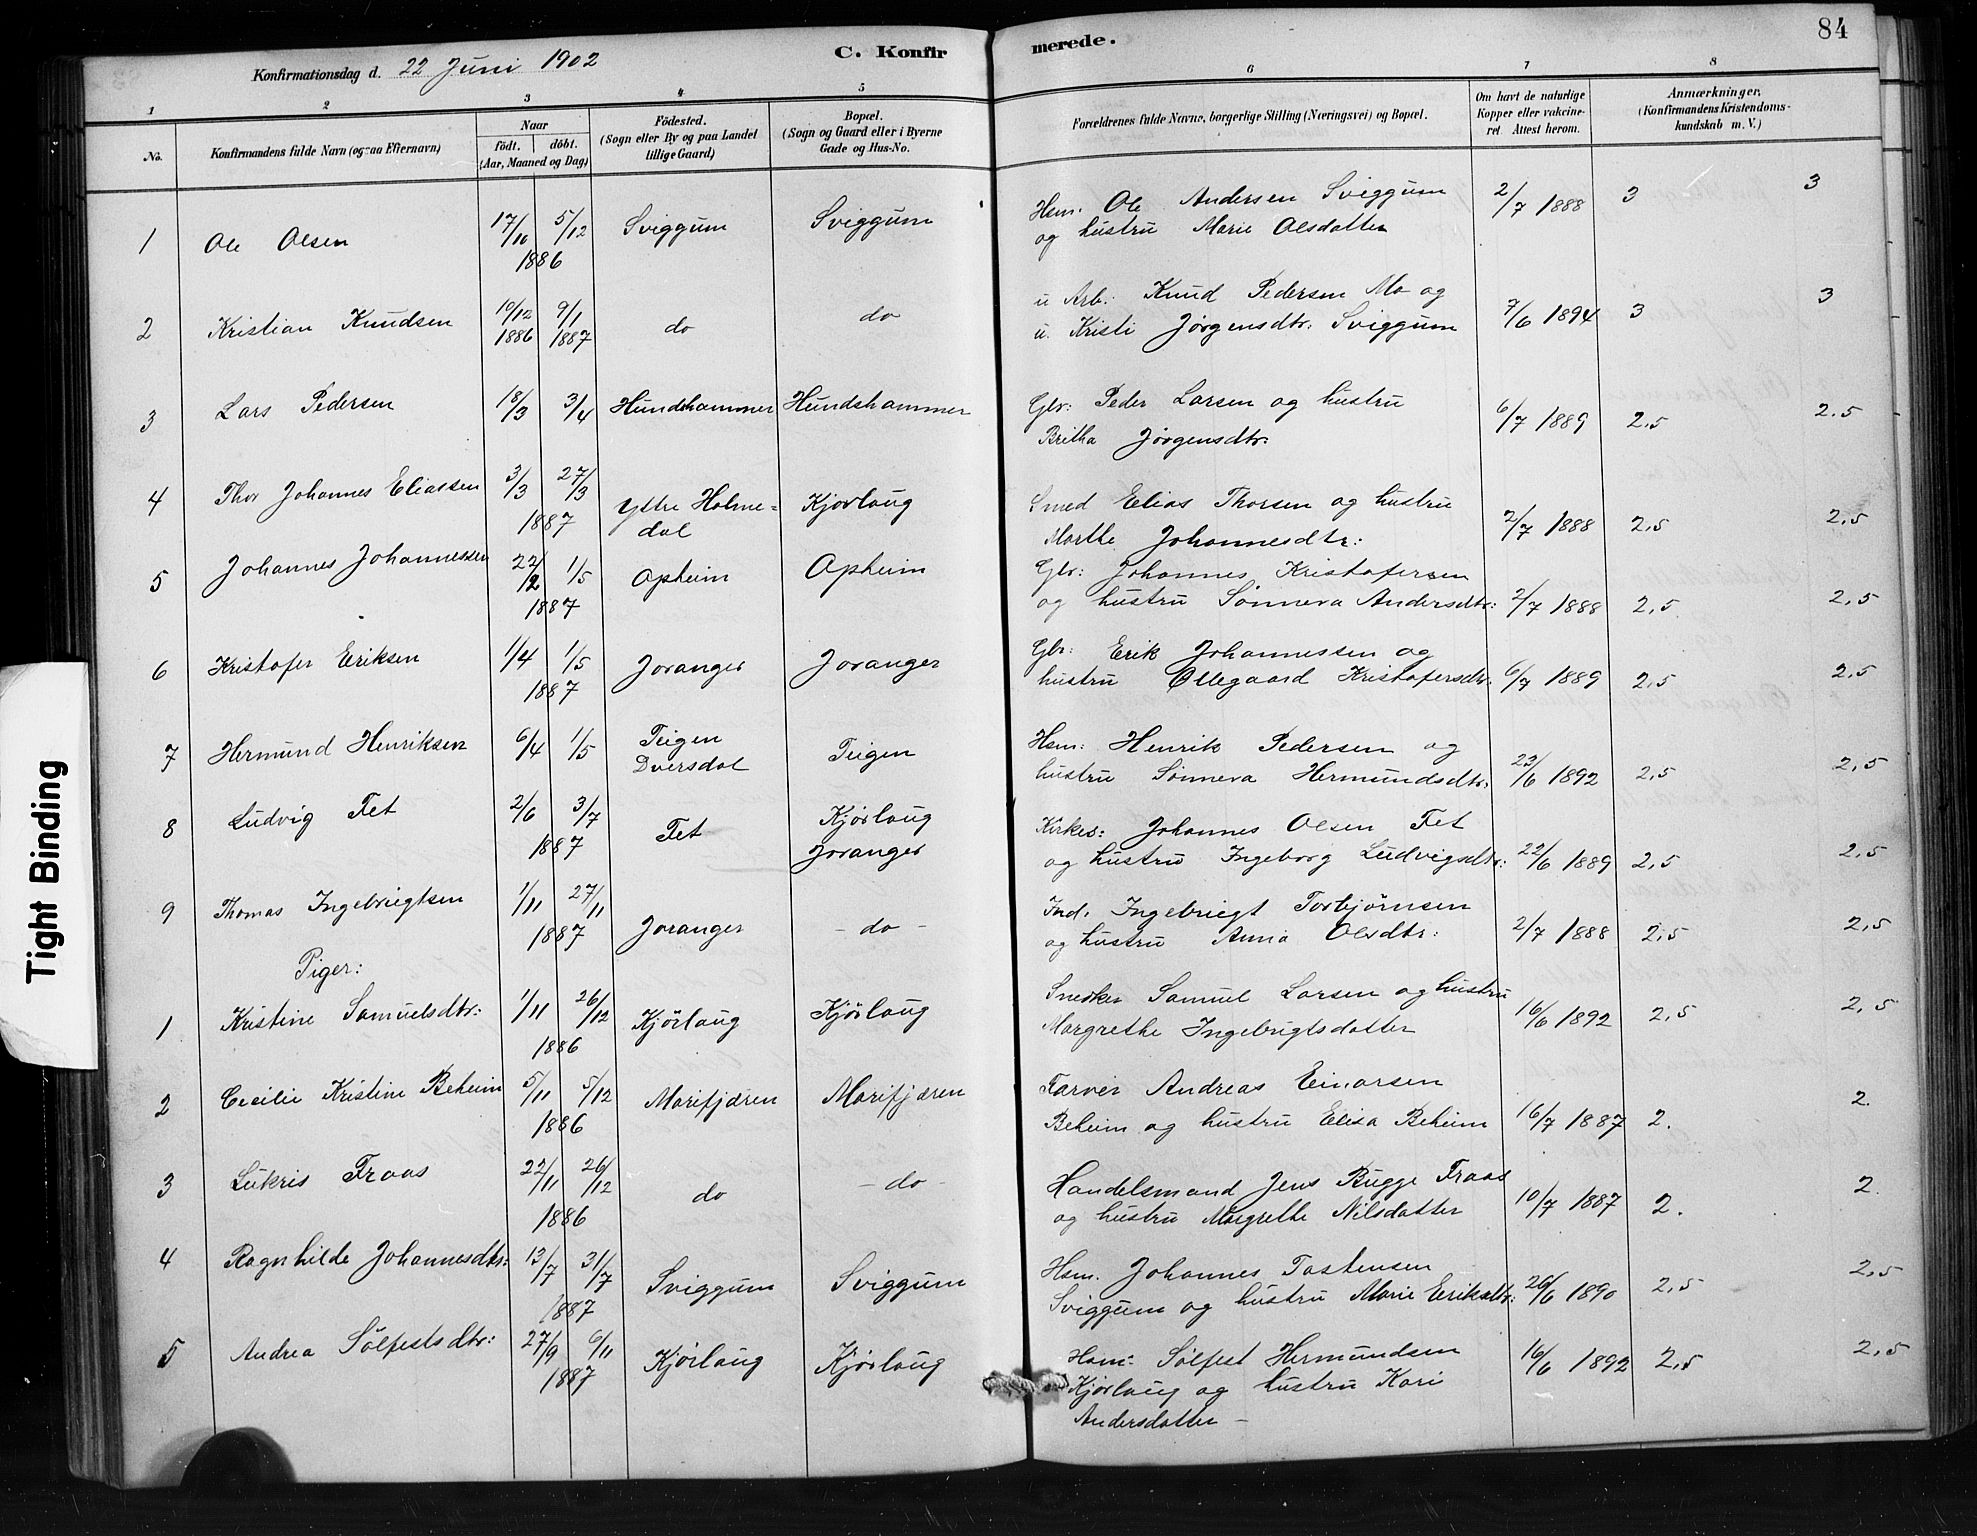 84
C. Konfirmerede.
Konfirmationsdag d. 22 Juni 1902
1 2 3 4 5 6 7 8
No.
Konfirmandens fulde Navn (ogsaa Efternavn)
Naar
födt. döbt.
(Aar, Maaned og Dag)
Födested.
(Sogn eller By og paa Landet
tillige Gaard)
Bopæl.
(Sogn og Gaard eller i Byerne
Gade og Hus-No.
Forældrenes fulde Navne, borgerlige Stilling (Næringsvei) og Bopæl.
Om havt de naturlige
Kopper eller vakcine-
ret Attest herom.
Anmærkninger.
(Konfirmandens Kristendoms-
kundskab m. V.)
1 Ole Olsen 17/10 5/12 1886 Sviggum Sviggum Hsm. Ole Andersen Sviggum
og hustru Marie Olsdatter 2/7 1888 3 3
2 Kristian Knudsen 10/12 1886 9/1 1887 do do u Arb.: Knud Pedersen Mo og
u. Kristi Jørgensdtr: Sviggum 7/6 1894 3 3
3 Lars Pedersen 18/3 3/4 Hundshammer Hundshammer Gbr: Peder Larsen og hustru
Britha Jörgensdtr: 6/7 1889 2,5 2,5
4 Thor Johannes Eliassen 3/3 27/3 1887 Ytre Holme=
dal Kjørlaug Smed Elias Thorsen og hustru
Marthe Johannesdtr: 2/7 1888 2,5 2,5
5 Johannes Johannessen 22/2 1/5 1887 Opheim Opheim Gbr: Johannes Kristofersen
og hustru Sønneva Andersdtr: 2/7 1888 2,5 2,5
6 Kristofer Eriksen 1/4 1/5 1887 Joranger Joranger Gbr: Erik Johannessen og
hustru Ollegaard Kristofersdtr. 6/7 1889 2,5 2,5
7 Hermund Henriksen 6/4 1/5 Teigen
Dversdal Teigen Hsm: Henrik Pedersen og
hustru Sønneva Hermundsdtr: 23/6 1892 2,5 2,5
8 Ludvig Fet 2/6 3/7 1887 Fet Kjørlaug
Joranger Kirkes: Johannes Olsen Fet
og hustru Ingeborg Ludvigsdtr: 22/6 1889 2,5 2,5
9 Thomas Ingebrigtsen 1/11 27/11 1887 Joranger - do - Ind. Ingebrigt Torbjørnsen
og hustru Anna Olsdtr: 2/7 1888 2,5 2,5
Piger:
1 Kristine Samuelsdtr: 1/11 26/12 1886 Kjörlaug Kjörlaug Snedker Samuel Larsen og hustru
Margrethe Ingebrigtsdatter 16/6 1892 2,5 2,5
2 Cecilie Kristine Beheim 5/11 5/12 1886 Marifjæren Marifjæren Farver Andreas Einarsen
Beheim og hustru Elisa Beheim 16/7 1887 2. 2.
3 Lukris Fraas 22/11 26/12 1886 do - do - Handelsmand Jens Bugge Fraas
og hustru Margrethe Nilsdatter 10/7 1887 2. 2.
4 Ragnhilde Johannesdtr: 13/7 31/7 1887 Sviggum Sviggum Hsm. Johannes Tostensen
Sviggum og hustru Marie Eriksdtr: 26/6 1890 2,5 2,5
5 Andrea Sølfestsdtr: 27/9 6/11 1887 Kjørlaug Kjørlaug Hsm: Sølfest Hermundsen
Kjørlaug og hustru Kari
Andersdatter - 16/6 1892 2,5 2,5
Tight Binding